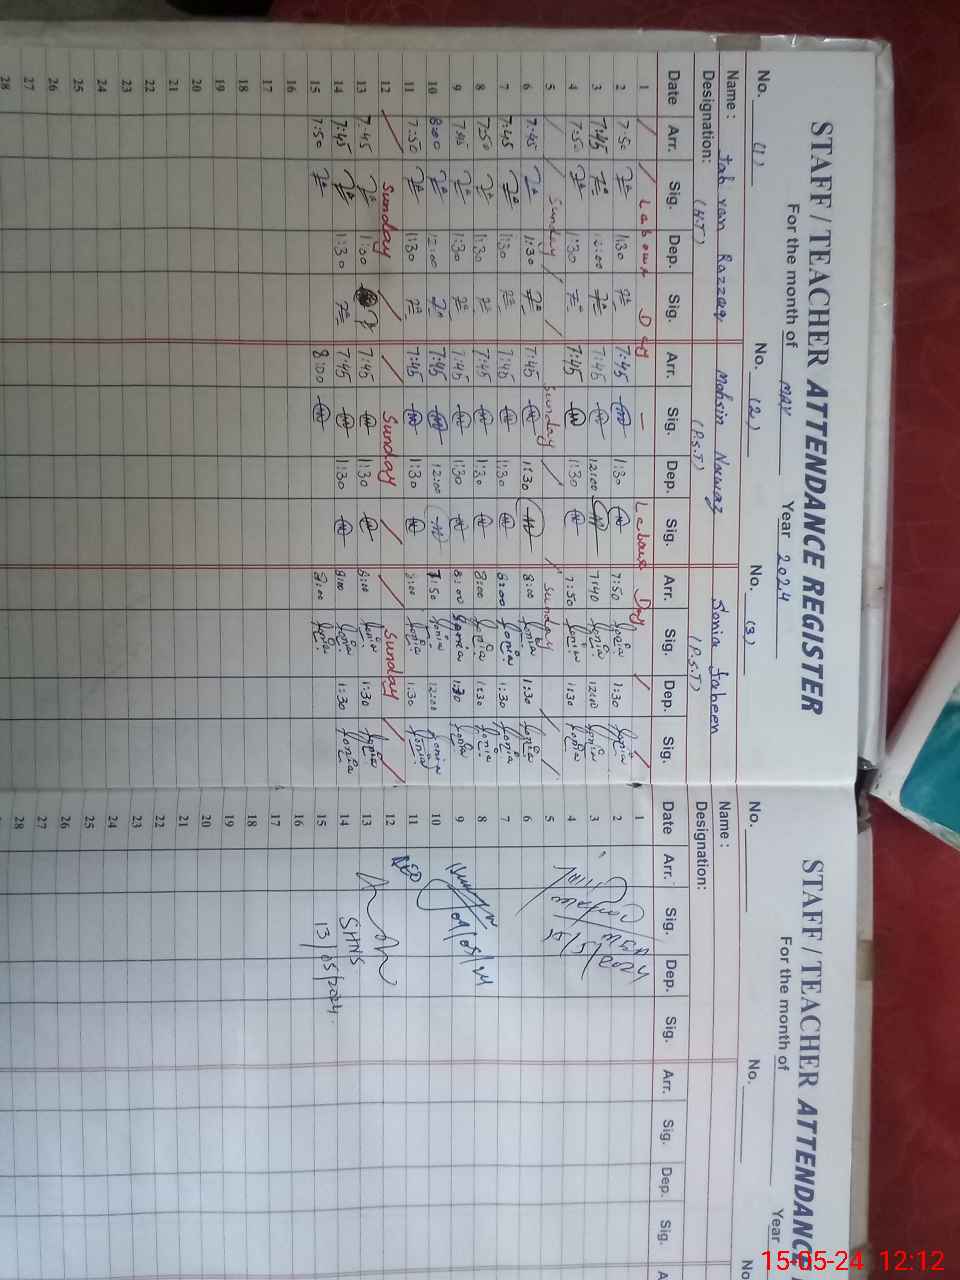 STAFF / TEACHER ATTENDANCE REGISTER
For the month of MAY Year 2024
No. (1) No. (2) No. (3)
Name: Razzaq Mohsin Nawaz Sonia Jabeen
Designation: (H.T) (P.S.T) (P.S.T)
Date Arr. Sig. Dep. Sig. Arr. Sig. Dep. Sig. Arr. Sig. Dep. Sig.
1 / / Labour Day — Labour Day /
2 7:50 1:30 7:45 1:30 7:50 Sonia 1:30 Sonia
3 7:45 12:00 7:45 12:00 7:40 Sonia 12:00 Sonia
4 7:50 1:30 7:45 1:30 7:50 Sonia 1:30 Sonia
5 / / Sunday / / Sunday / / Sunday / /
6 7:45 1:30 7:45 1:30 8:00 Sonia 1:30 Sonia
7 7:45 1:30 7:45 1:30 8:00 Sonia 1:30 Sonia
8 7:50 1:30 7:45 1:30 8:00 Sonia 1:30 Sonia
9 7:45 1:30 7:45 1:30 8:00 Sonia 1:30 Sonia
10 8:00 12:00 7:45 12:00 7:50 Sonia 12:00 Sonia
11 7:50 1:30 7:45 1:30 8:00 Sonia 1:30 Sonia
12 / Sunday / / Sunday / / Sunday /
13 7:45 1:30 7:45 1:30 8:00 Sonia 1:30 Sonia
14 7:45 1:30 7:45 1:30 8:00 Sonia 1:30 Sonia
15 7:50 8:00 8:00 Sonia
16
17
18
19
20
21
22
23
24
25
26
27
28
STAFF / TEACHER ATTENDANCE
For the month of Year
No. No. No.
Name:
Designation:
Date Arr. Sig. Dep. Sig. Arr. Sig. Dep. Sig. A
1
2
3
4
5
6
7
8
9
09/05/24
10
11
12
13
14
SHNS
15
13/05/2024
16
17
18
19
20
21
22
23
24
25
26
27
28
15-05-24 12:12